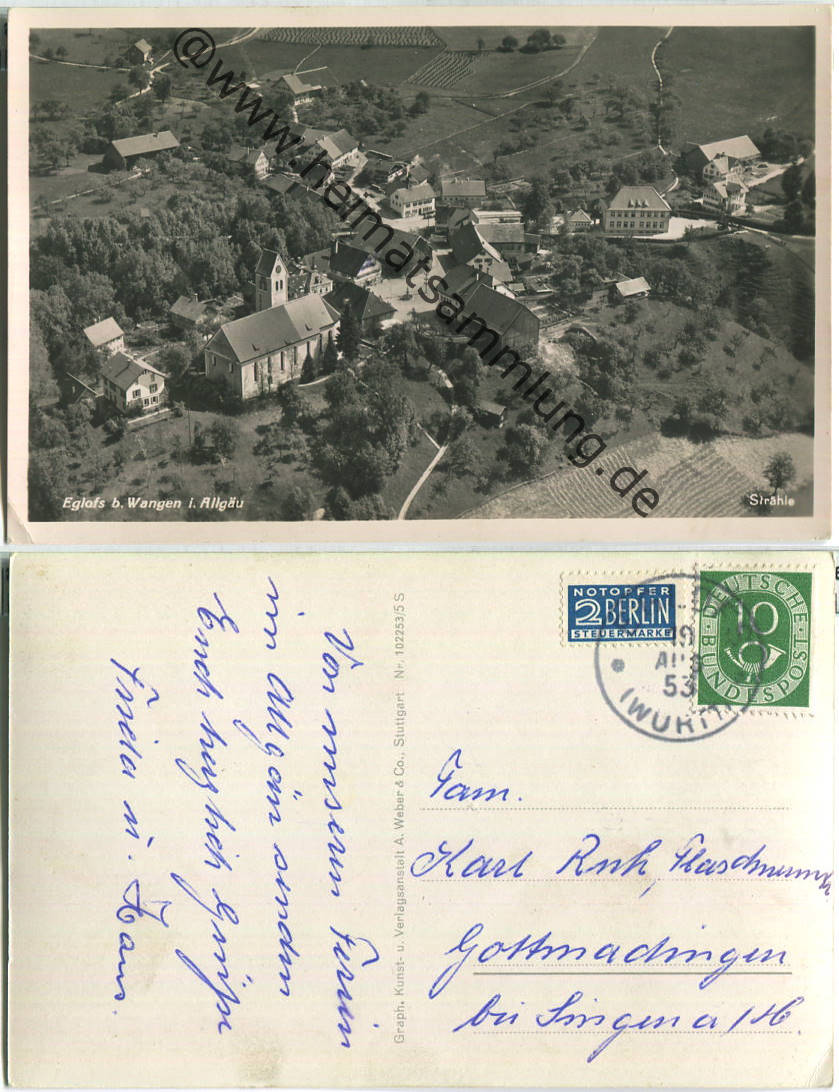 @www.heimatsammlung.de
Eglofs b. Wangen i. Allgäu
Strähle
Von unserem Ferien
im Allgäu senden
Euch herzlich Grüße
Frieda u. Hans.
Graph. Kunst- u. Verlagsanstalt A. Weber & Co., Stuttgart Nr. 102253/5 S
NOTOPFER
2 BERLIN
STEUERMARKE
DEUTSCHE
10
BUNDESPOST
19
AUG
53
(WÜRTT
Fam.
Karl Ruh, Flaschnerm
Gottmadingen
bei Singen a/H.